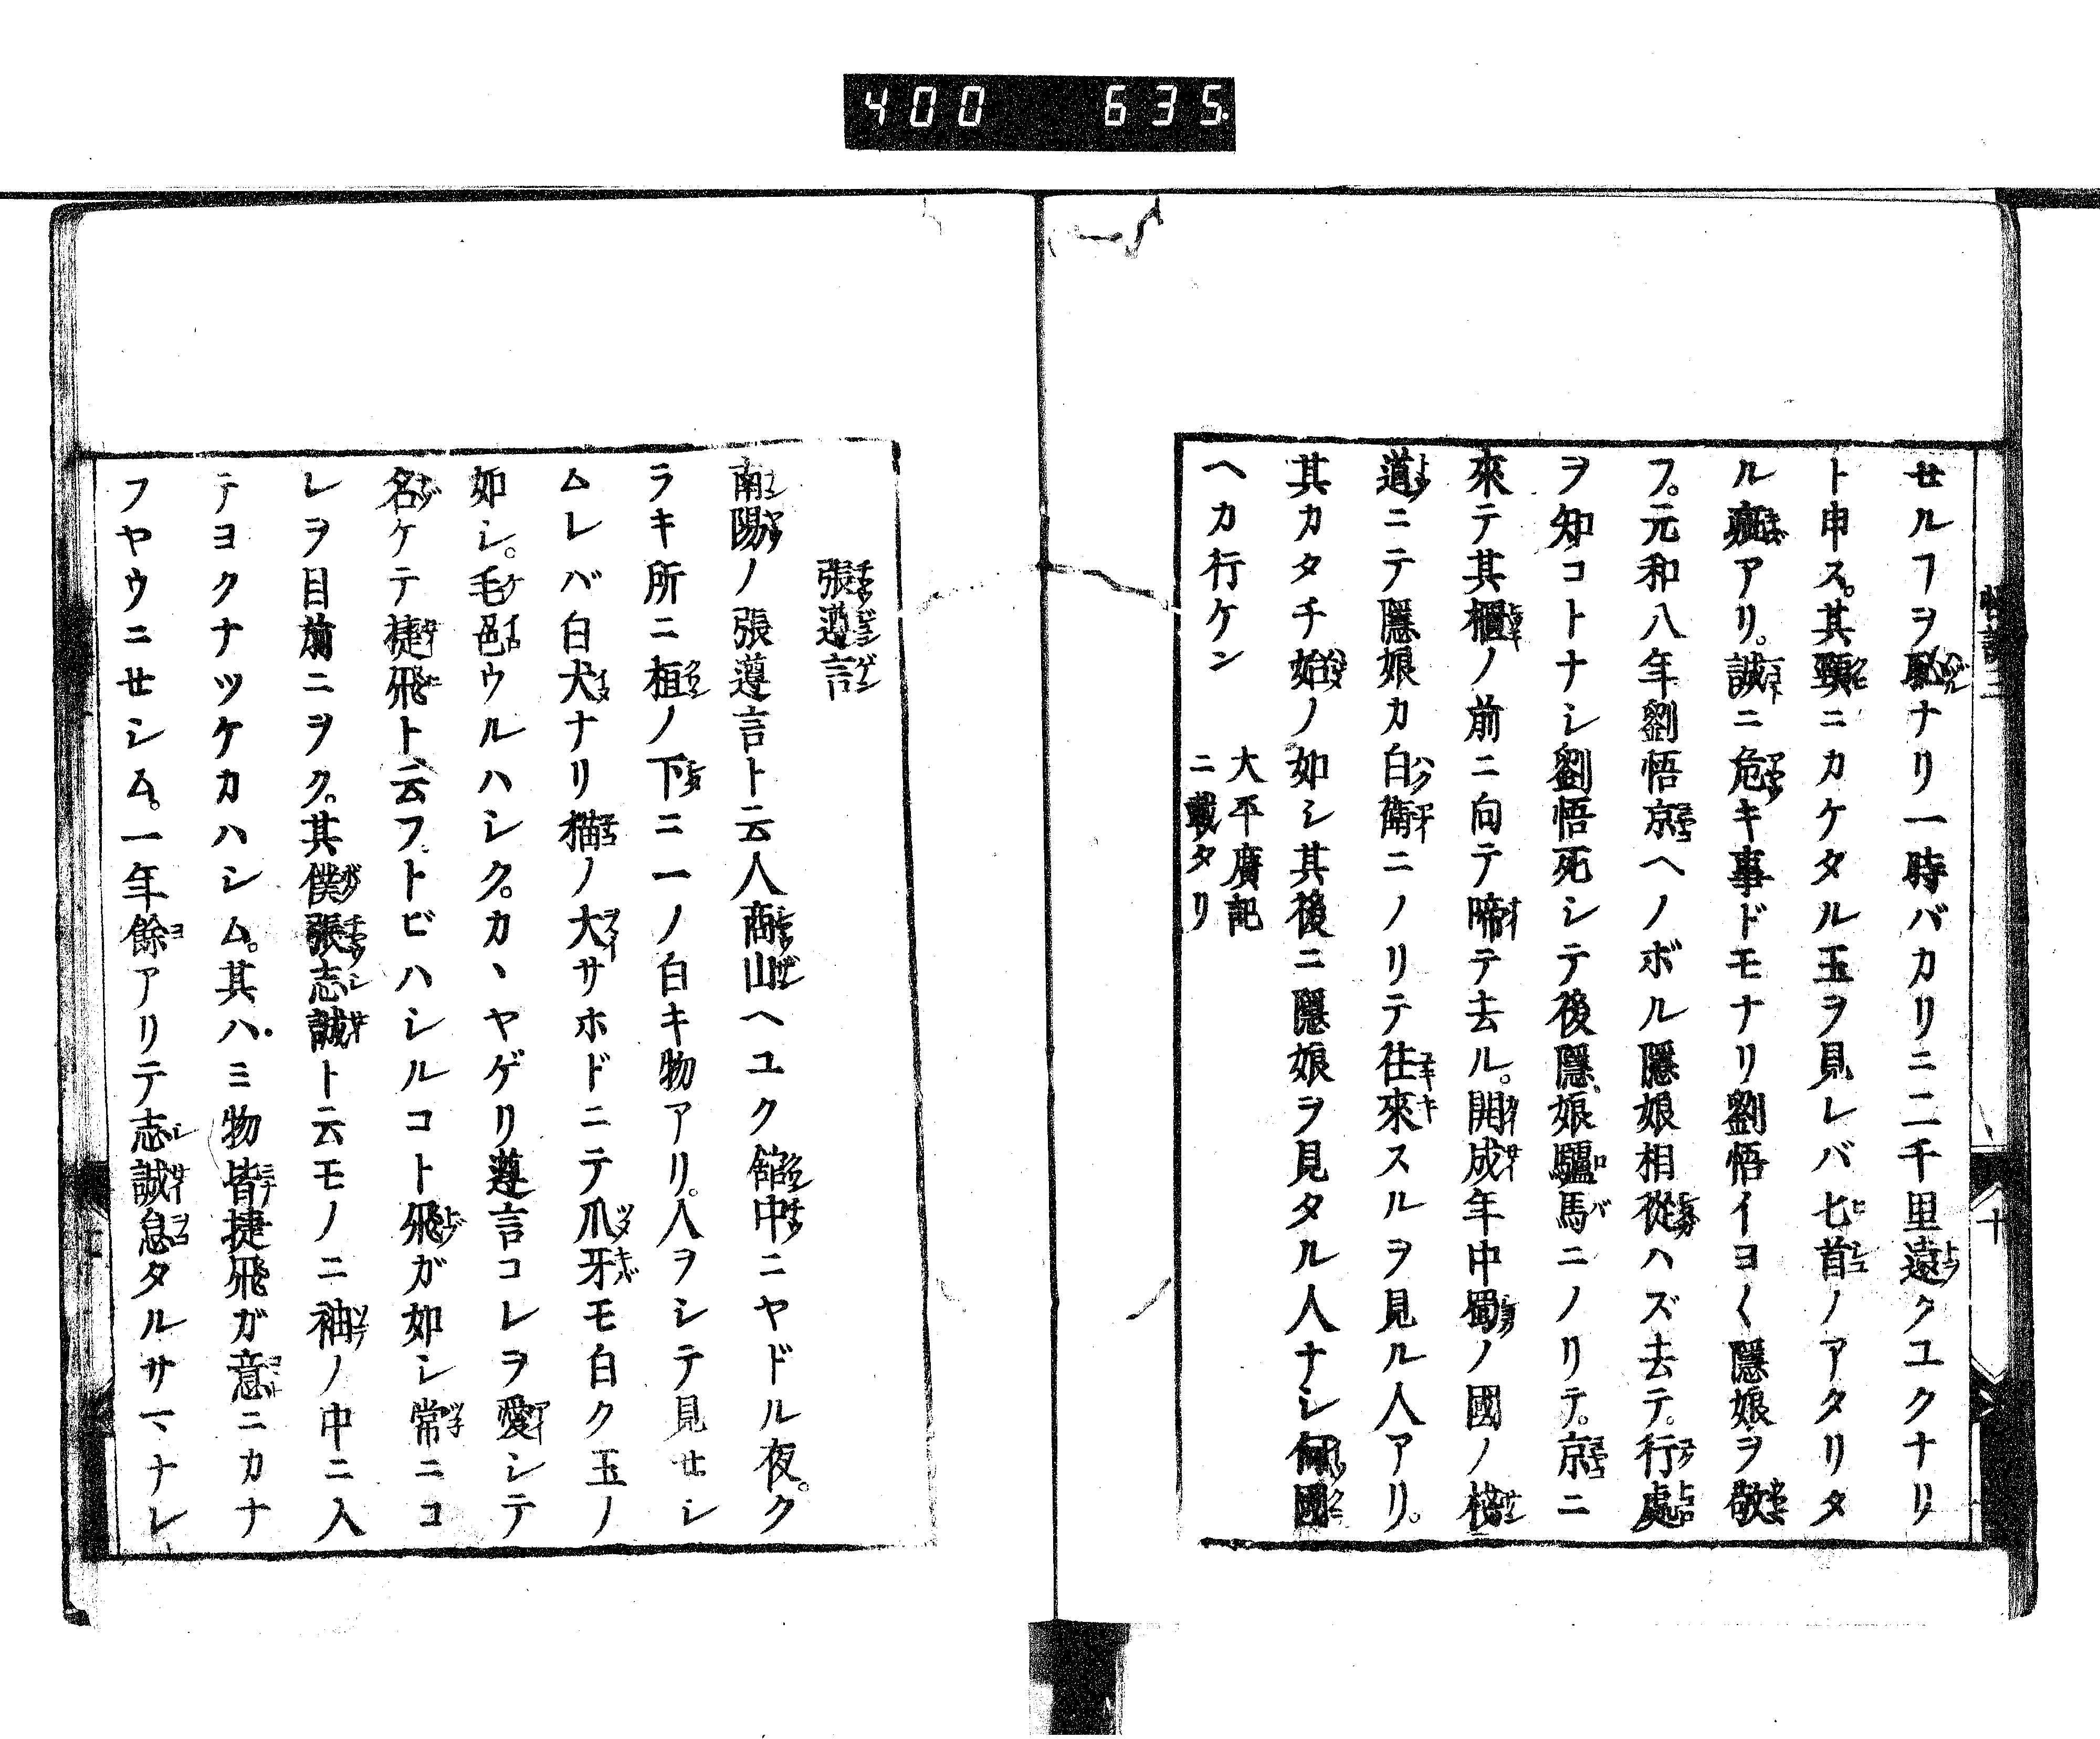 400 635
セルヿヲ恥ナリ一時バカリニ二千里遠クユクナリ
ト申ス。其頸ニカケタル玉ヲ見レバ匕首ノアタリタ
ル疵アリ。誠ニ危キ事ドモナリ劉悟イヨ〱隱娘ヲ敬
フ。元和八年劉悟京ヘノボル隱娘相從ハズ去テ。行處
ヲ知コトナシ劉悟死シテ後隱娘驢馬ニノリテ。京ニ
來テ其櫃ノ前ニ向テ啼テ去ル。開成年中蜀ノ國ノ棧
道ニテ隱娘カ白衛ニノリテ往來スルヲ見ル人アリ。
其カタチ始ノ如シ其後ニ隱娘ヲ見タル人ナシ何國
ヘカ行ケン 大平廣記
ニ載タリ
十
張遵言
南陽ノ張遵言ト云人商山ヘユク館中ニヤドル夜。ク
ラキ所ニ桓ノ下ニ一ノ白キ物アリ。人ヲシテ見セシ
ムレバ白犬ナリ猫ノ大サホドニテ爪牙モ白ク玉ノ
如シ。毛色ウルハシク。カヽヤゲリ遵言コレヲ愛シテ
名ケテ捷飛ト云フ。トビハシルコト飛ガ如シ常ニコ
レヲ目前ニヲク。其僕張志誠ト云モノニ袖ノ中ニ入
テヨクナツケカハシム。其ハミ物皆捷飛ガ意ニカナ
フヤウニセシム。一年餘アリテ志誠怠タルサマナレ